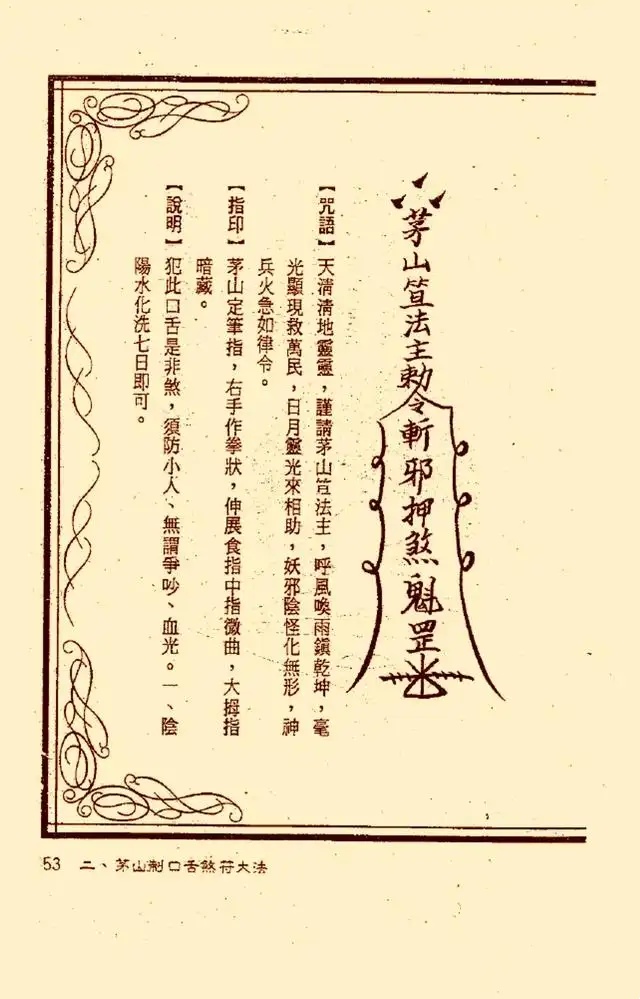 茅山笪法主勅令斬邪押煞魁罡
【咒語】天清清地靈靈，謹請茅山笪法主，呼風喚雨鎮乾坤，毫
光顯現救萬民，日月靈光來相助，妖邪陰怪化無形，神
兵火急如律令。
【指印】茅山定筆指，右手作拳狀，伸展食指中指微曲，大拇指
暗藏。
【說明】犯此口舌是非煞，須防小人、無謂爭吵、血光。一、陰
陽水化洗七日即可。
53 二、茅山制口舌煞符大法